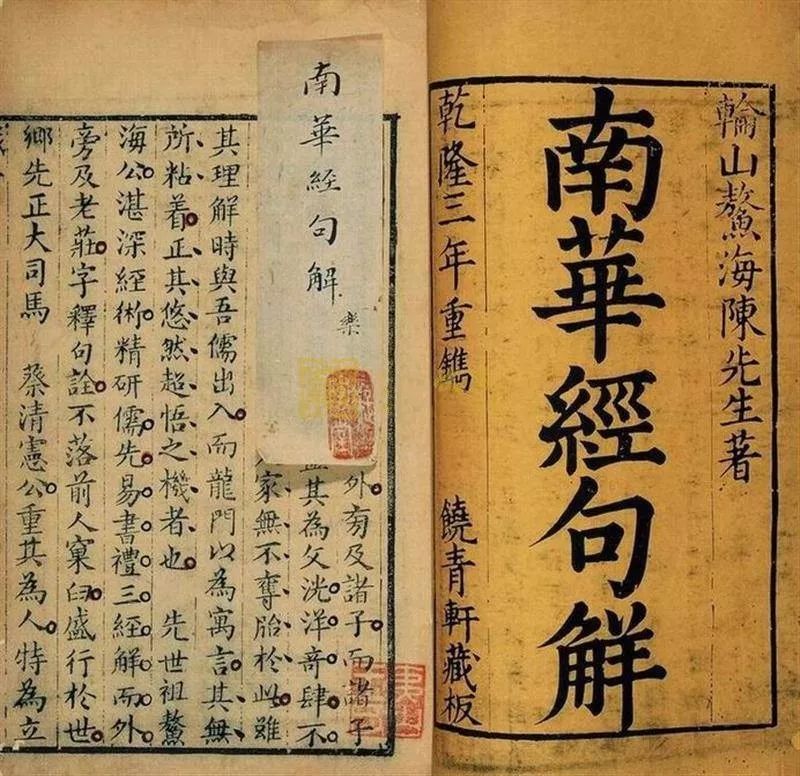 輪山鰲海陳先生著
南華經句解
乾隆三年重鐫 饒青軒藏板
南華經句解
樂
外旁及諸子而諸子
其為文洸洋奇肆不
家無不奪胎於此雖
其理解時與吾儒出入而龍門以為寓言其無
所粘着正其悠然超悟之機者也 先世祖鰲
海公湛深經術精研儒先易書禮三經解而外
旁及老莊字釋句詮不落前人窠臼盛行於世
鄉先正大司馬 蔡清憲公重其為人特為立